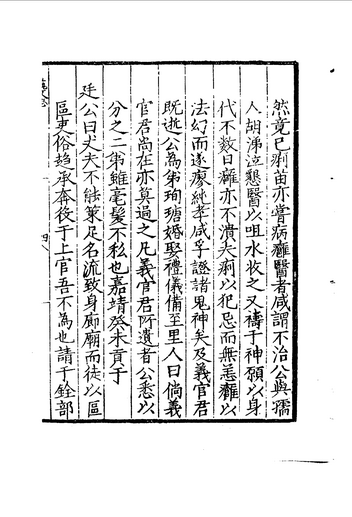 然竟已痢苗亦嘗病癰醫者咸謂不治公與孺
人胡涕泣懇醫以咀水收之又禱于神願以身
代不數日癰亦不潰夫痢以犯忌而無恙癰以
法幻而遂瘳純孝咸孚諡諸鬼神矣及義官君
既逝公為弟珣瑭婚娶禮儀備至里人曰倘義
官君尚在亦莫過之凡義官君所遺者公悉以
分之二弟雖毫髮不私也嘉靖癸未貢于
廷公曰丈夫不能策足名流致身廊廟而徒以區
區吏俗趋承奔後于上官吾不為也請于銓部